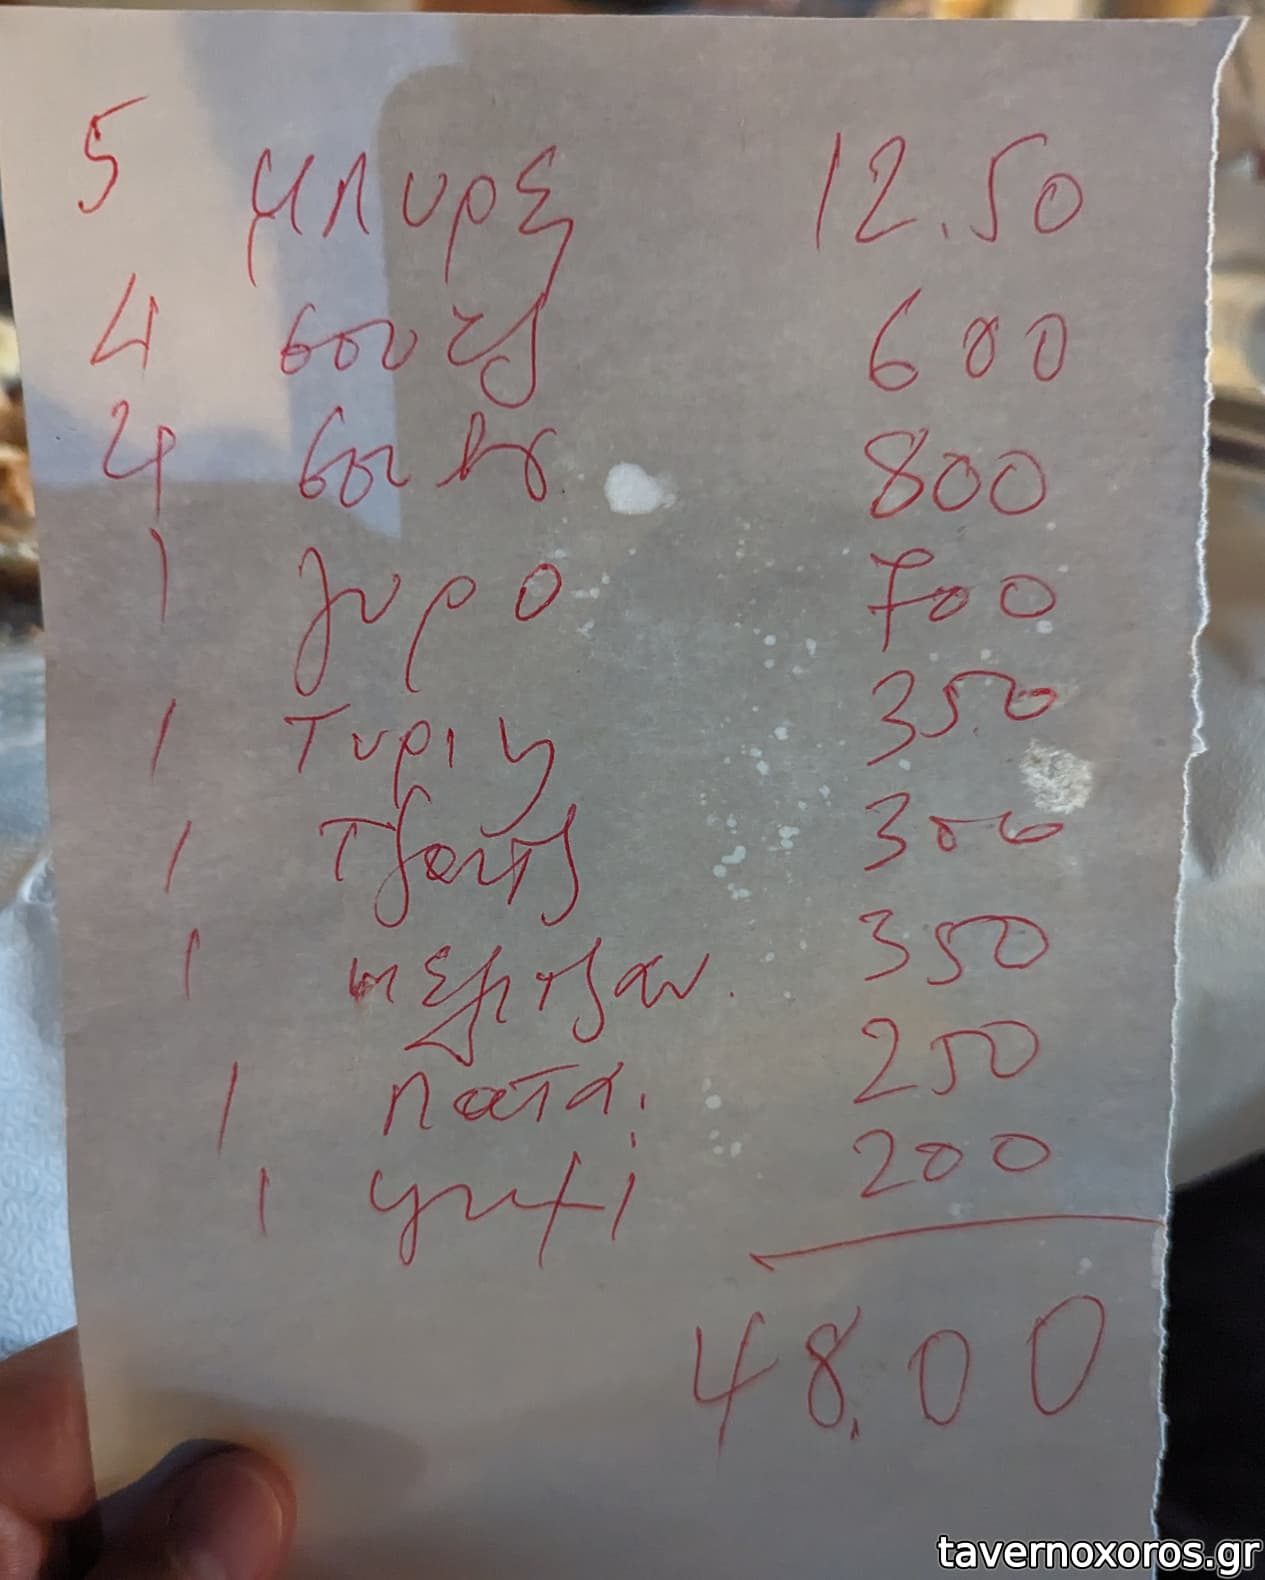 5 μπυρες 12.50
4 σουτζ 600
4 σου 800
1 γυρο 700
1 τυρι 350
1 τζατζ 300
1 μελιτζαν. 350
1 πατα. 250
1 ψωμι 200
48.00
tavernoxoros.gr